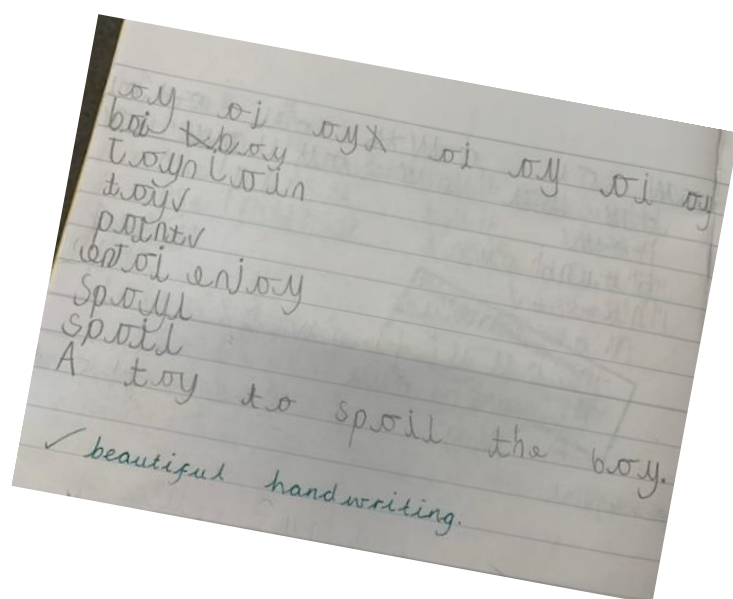 oy oi oyx oi oy oi oy
boi boy
coyn coin
toy✓
point✓
enjoi enjoy
spoyl
spoil
A toy to spoil the boy.
✓ beautiful handwriting.